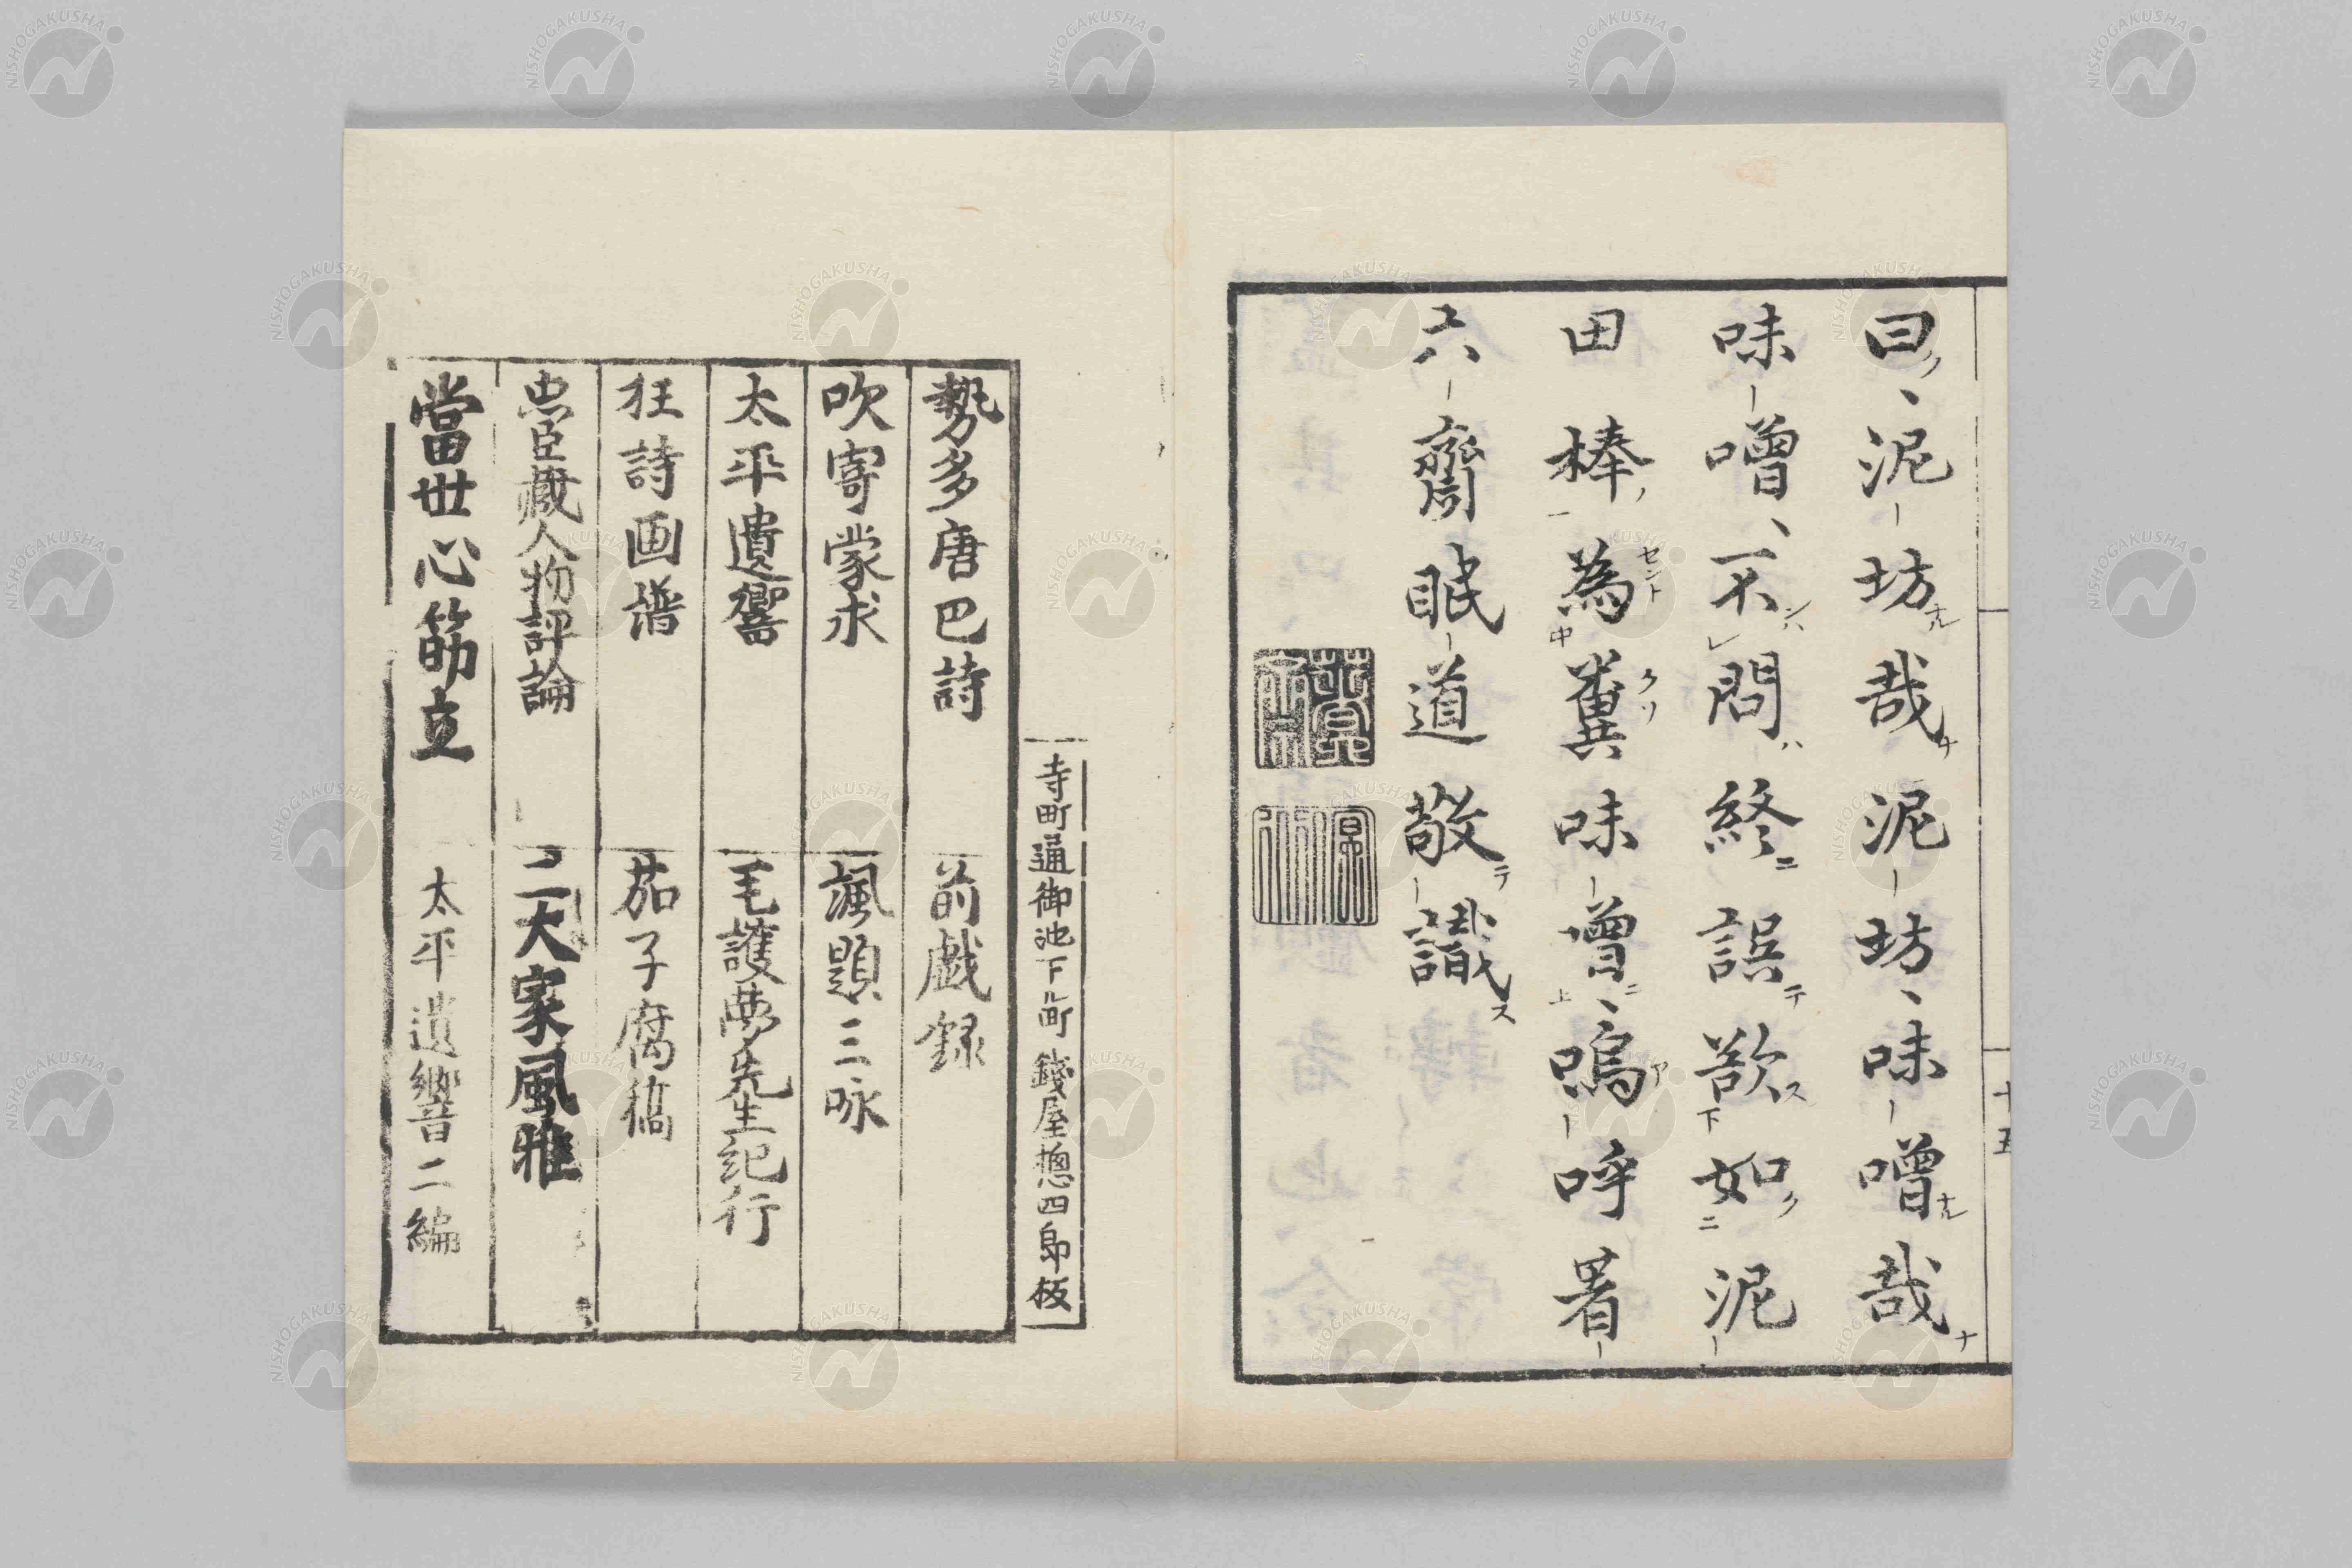 曰、泥坊哉泥坊、味噌哉
味噌、不問終誤欲如泥
田棒為糞味噌、嗚呼署
六齋眠道敬識
十五
寺町通御池下ル町 錢屋摠四郎板
勢多唐巴詩 前戯録
吹寄蒙求 諷題三咏
太平遺響 毛護夢先生紀行
狂詩画譜 茄子腐稿
忠臣藏人物評論 二大家風雅
當世心筋立 太平遺響二編